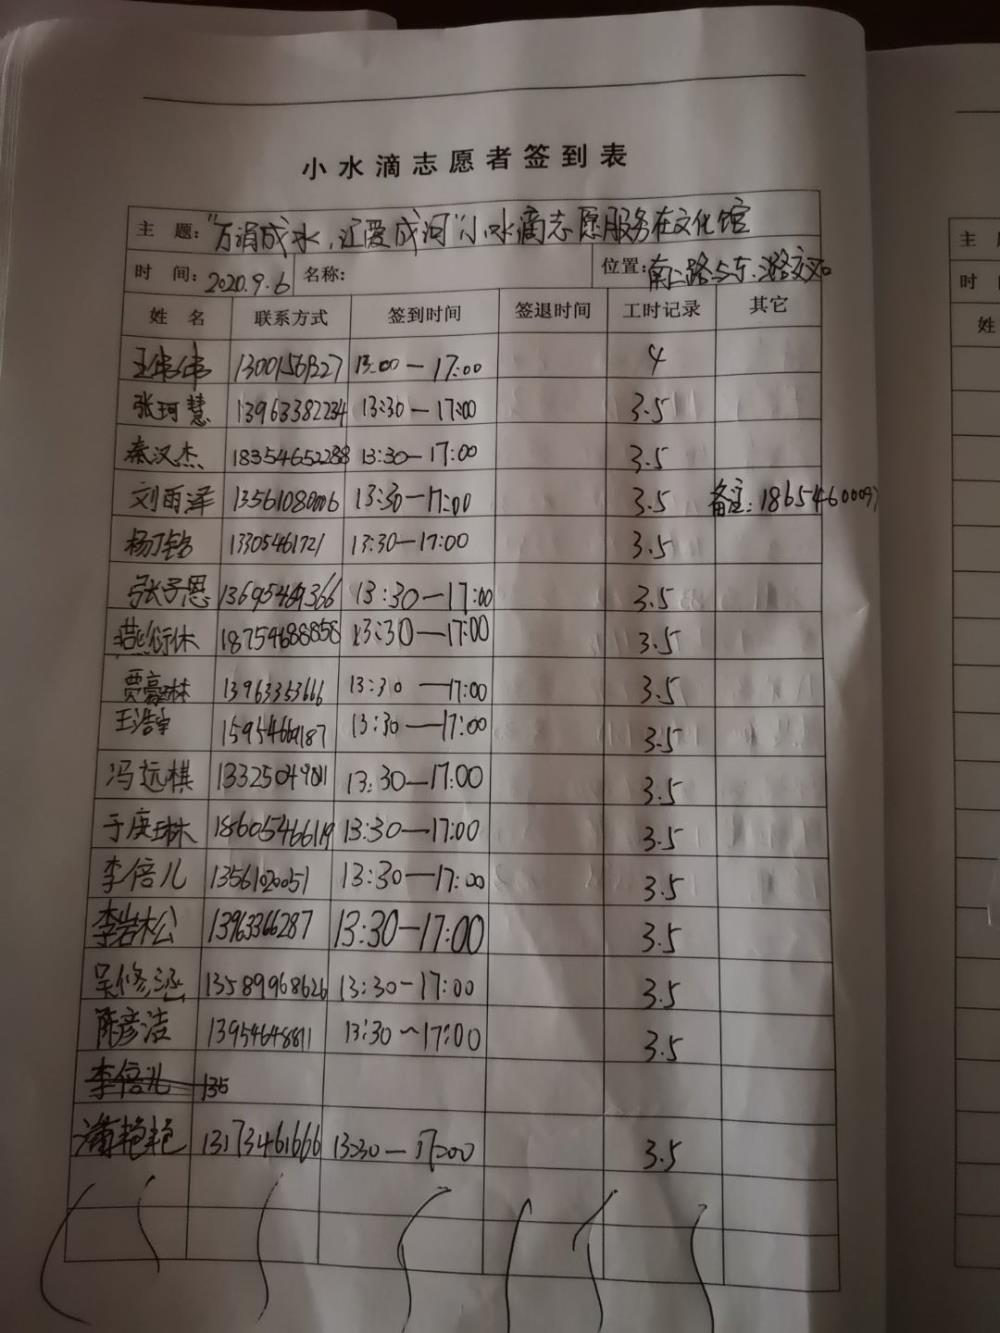 小水滴志愿者签到表
主 题："万涓成水，汇爱成河"小水滴志愿服务在文化馆
时 间：2020.9.6 名称： 位置：南二路与东
姓 名 联系方式 签到时间 签退时间 工时记录 其它
王伟伟 13:00—17:00 4
张珂慧 13963382234 13:30—17:00 3.5
秦汉杰 18354652288 13:30—17:00 3.5
刘雨泽 13561080006 13:30—17:00 3.5 备注：1865460009
杨 铭 13305461721 13:30—17:00 3.5
张子恩 13:30—17:00 3.5
燕衍休 18754688858 13:30—17:00 3.5
贾豪琳 13963353666 13:30—17:00 3.5
王浩宇 13:30—17:00 3.5
冯远棋 13:30—17:00 3.5
于庚琳 13:30—17:00 3.5
李倍儿 13561020051 13:30—17:00 3.5
李岩松 1396366287 13:30—17:00 3.5
吴修涵 13589968626 13:30-17:00 3.5
陈彦洁 13954648811 13:30～17:00 3.5
李倍儿 135
潘艳艳 13173461666 13:30—17:00 3.5
主
时
姓